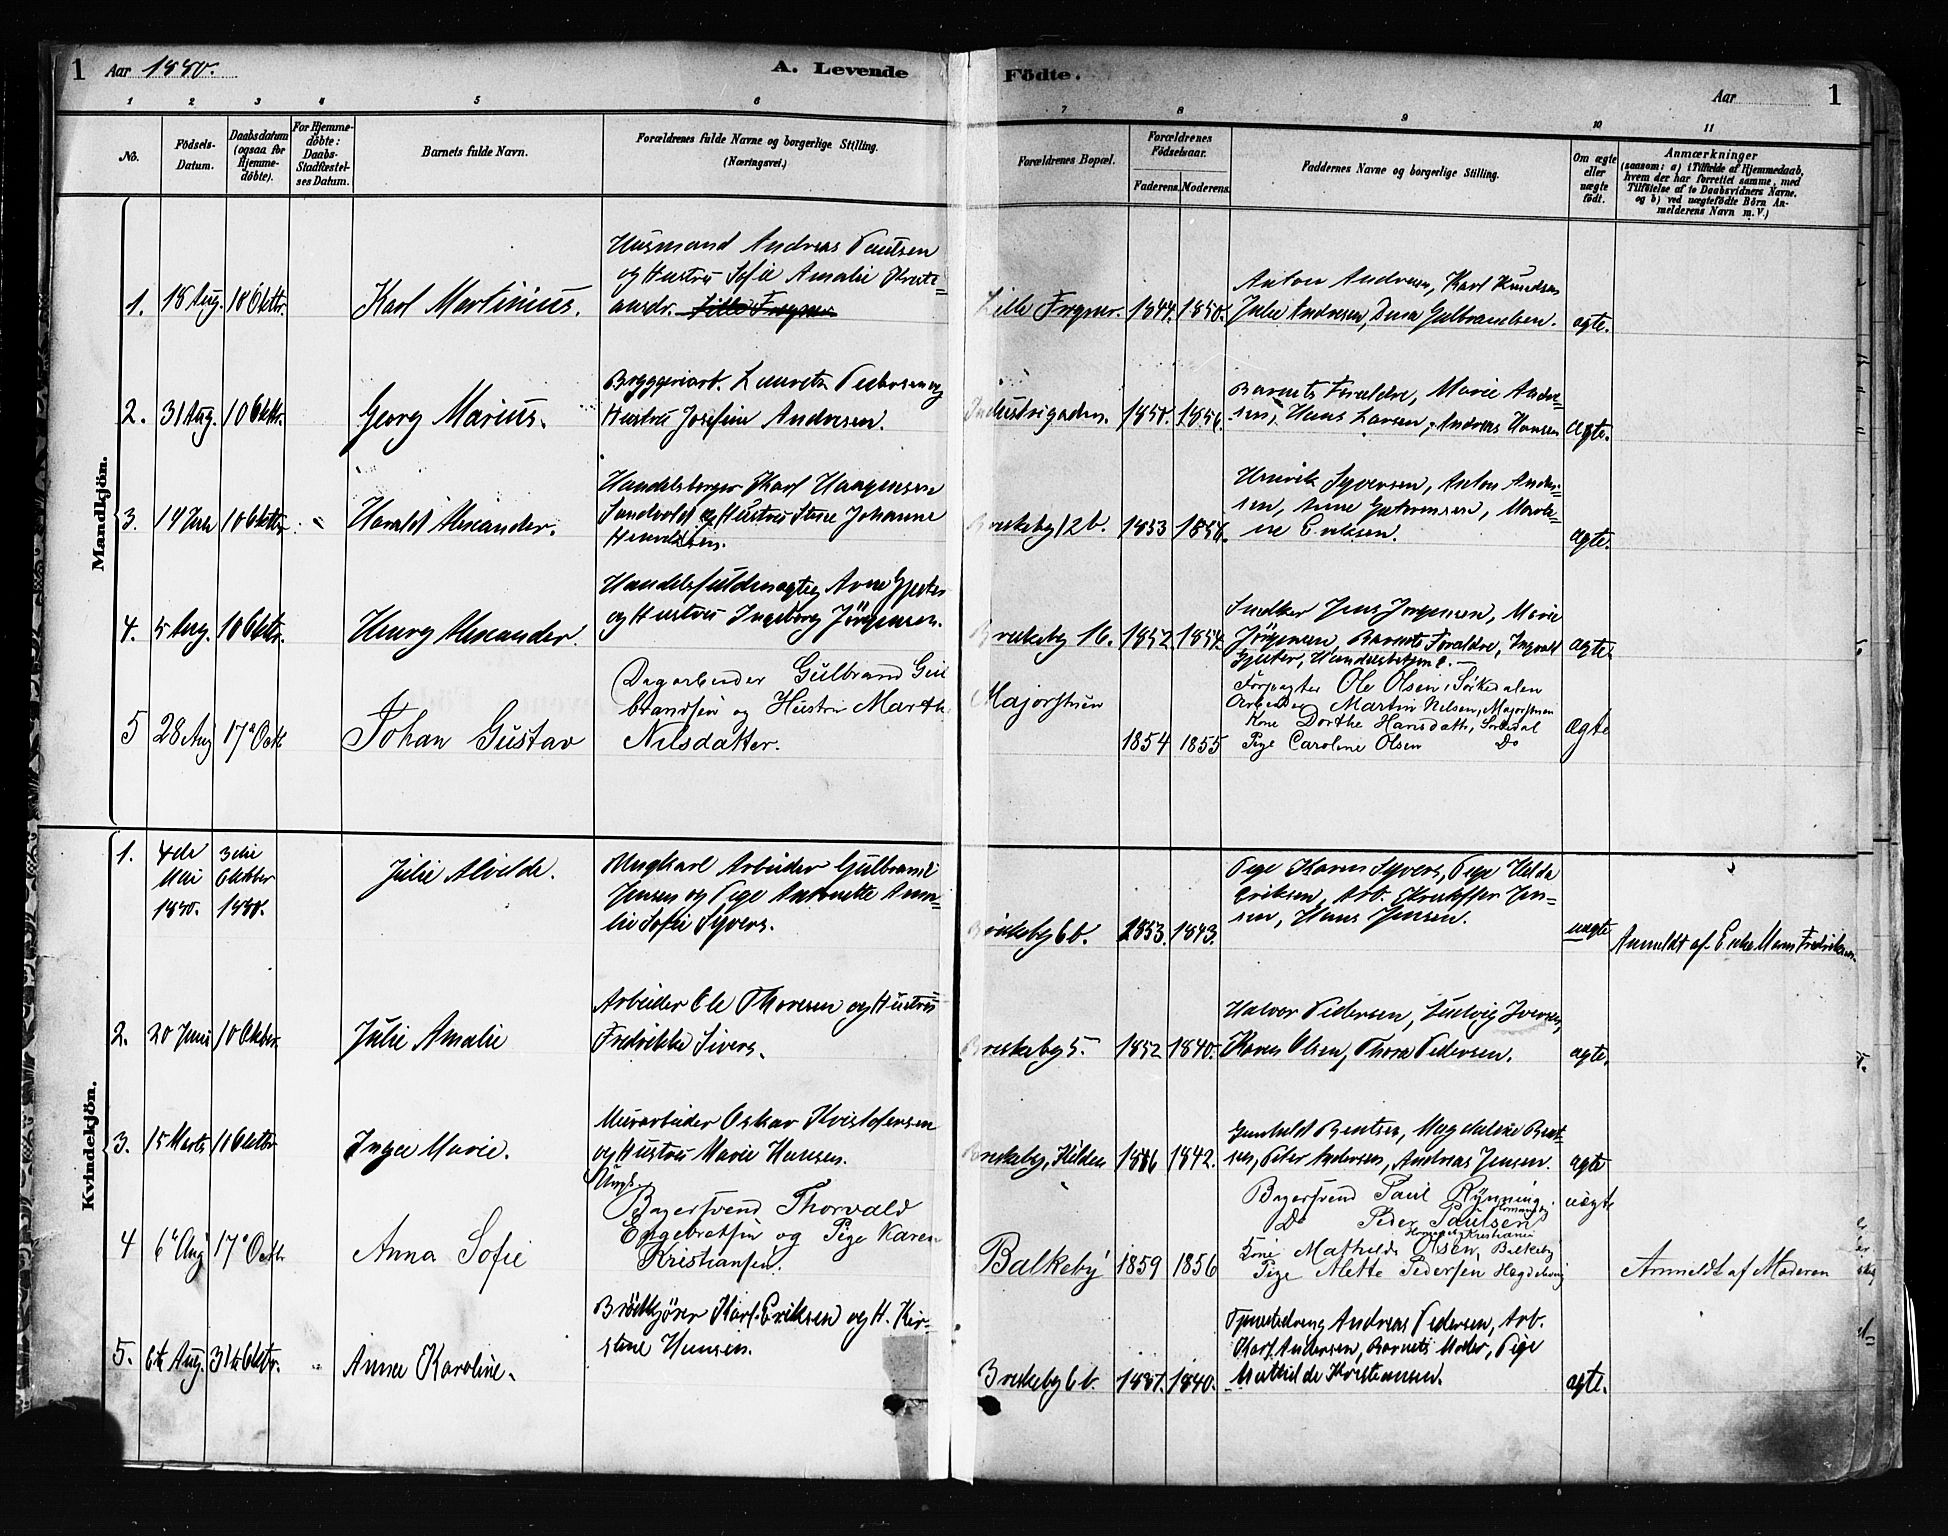 1 Aar 1880. A. Levende Födte. Aar 1
1 2 3 4 5 6 7 8 9 10 11
No.
Födsels-
Datum.
Daabsdatum
(ogsaa for
Hjemme-
döbte).
For Hjemme-
döbte:
Daabs-
Stadfæstel-
ses Datum.
Barnets fulde Navn.
Forældrenes fulde Navne og borgerlige Stilling.
(Næringsvei.)
Forældrenes Bopæl.
Forældrenes
Födselsaar.
Faderens. Moderens.
Faddernes Navne og borgerlige Stilling.
Om ægte
eller
uægte
födt.
Anmærkninger
(saasom: a) i Tilfælde af Hjemmedaab,
hvem der har forrettet samme, med
Tilföielse af to Daabsvidners Navne.
og b) ved uægtefödte Börn An-
melderens Navn m. V.)
Mandkjön.
1. 18 Aug. 10 Oktbr.
Karl Martinius.
Husmand Andreas Paulsen
og Hustru Sofie Amalie Kristi-
ansdr. Lille Frogner
Lille Frogner. 1844. 1850.
Anton Andresen, Karl Knudsen
Julie Andresen, Dina Gulbrandsen.
ægte.
2. 31 Aug. 10 Oktbr.
Georg Marius.
Bryggeriarb. Laurits Pedersen og
Hustru Josefine Andresen.
Industrigaden. 1856.
Barnets Forældre, Marie Andre-
sen, Hans Larsen, Andreas Hansen
ægte.
3. 14 10 Oktbr
Harald Alexander.
Handelsborger Karl Haagensen
Sandvold og Hustru Johanne
Briskeby 12b. 1853 1856.
Henrik Syversen, Anton Ander-
sen, Anne
ne Eriksen.
ægte.
4. 5 Aug. 10 Oktbr.
Henry Alexander.
Handelsfuldmægtig Arne Gjester
og Hustru Ingeborg Jörgensen.
Briskeby 16. 1852. 1854.
Snedker Jens Jorgensen, Marie
Jörgensen, Barnets Forældre, Ingvald
Gjester, Handelsbetjent.
ægte.
5 28 Aug 17de Octb
Johan Gustav
Dagarbeider Gulbrand Gul
brandsen og Hustru Marth.
Nilsdatter.
Majorstuen
1854 1855
Forpagter Ole Olsen, Sörkedalen
Arbeider Martin Nilsen, Majorstuen
Kone Dorthe Hansdatter, Sörkedal
Pige Caroline Olsen Do
Ægte
Kvindekjön.
1. 4de
Mai
1880.
3die
Oktober
1880.
Julie Alvilde.
Ungkarl Arbeider Gulbrand
Jensen og Pige Antonette Ama-
lie Sofie Syvers.
Briskeby 6b. 1853. 1843.
Pige Karen Syvers, Pige Helda
Eriksen, Arb. Kristoffer Jen-
sen, Hans Jensen.
uægte
Anmeldt af Enke Maren Fredriksen.
2. 20 Juni 10 Oktbr.
Julie Amalie
Arbeider Ole Thoresen og Hustru
Fredrikke Sivers.
Briskeby 5. 1852 1840.
Halvor Pedersen, Ludvig Iversen,
Karen Olsen, Thora Pedersen.
ægte.
3. 15 Marts 10 Oktbr
Inga Marie.
Murarbeider Oskar Kristofersen
og Hustru Marie Hansen.
Briskeby, Kilden 1842.
Gunhild Bentsen, Magdaline Bent-
sen, Peter Andersen, Andreas Jensen.
ægte
4 6te Aug 17de Octbr
Anna Sofie
Ungk.
Bagersvend Thorvald
Engebretsen og Pige Karen
Kristiansen.
Balkeby 1859 1856
Bagersvend Paul Rynning
Do Peder Paulsen
Kristiania
Kone Mathilde Olsen, Balkeby
Pige Alette Pedersen Hegdehaug
uægte
Anmeldt af Moderen
5. 6te Aug. 31te Oktbr.
Anna Karoline.
Karl Eriksen og H. Kir-
stine Hansen.
Briskeby 6b. 1837. 1840.
Tjenestedreng Andreas Pedersen, Arb.
Karl Andersen, Barnets Moder, Pige
Mathilde Kristiansen.
ægte.